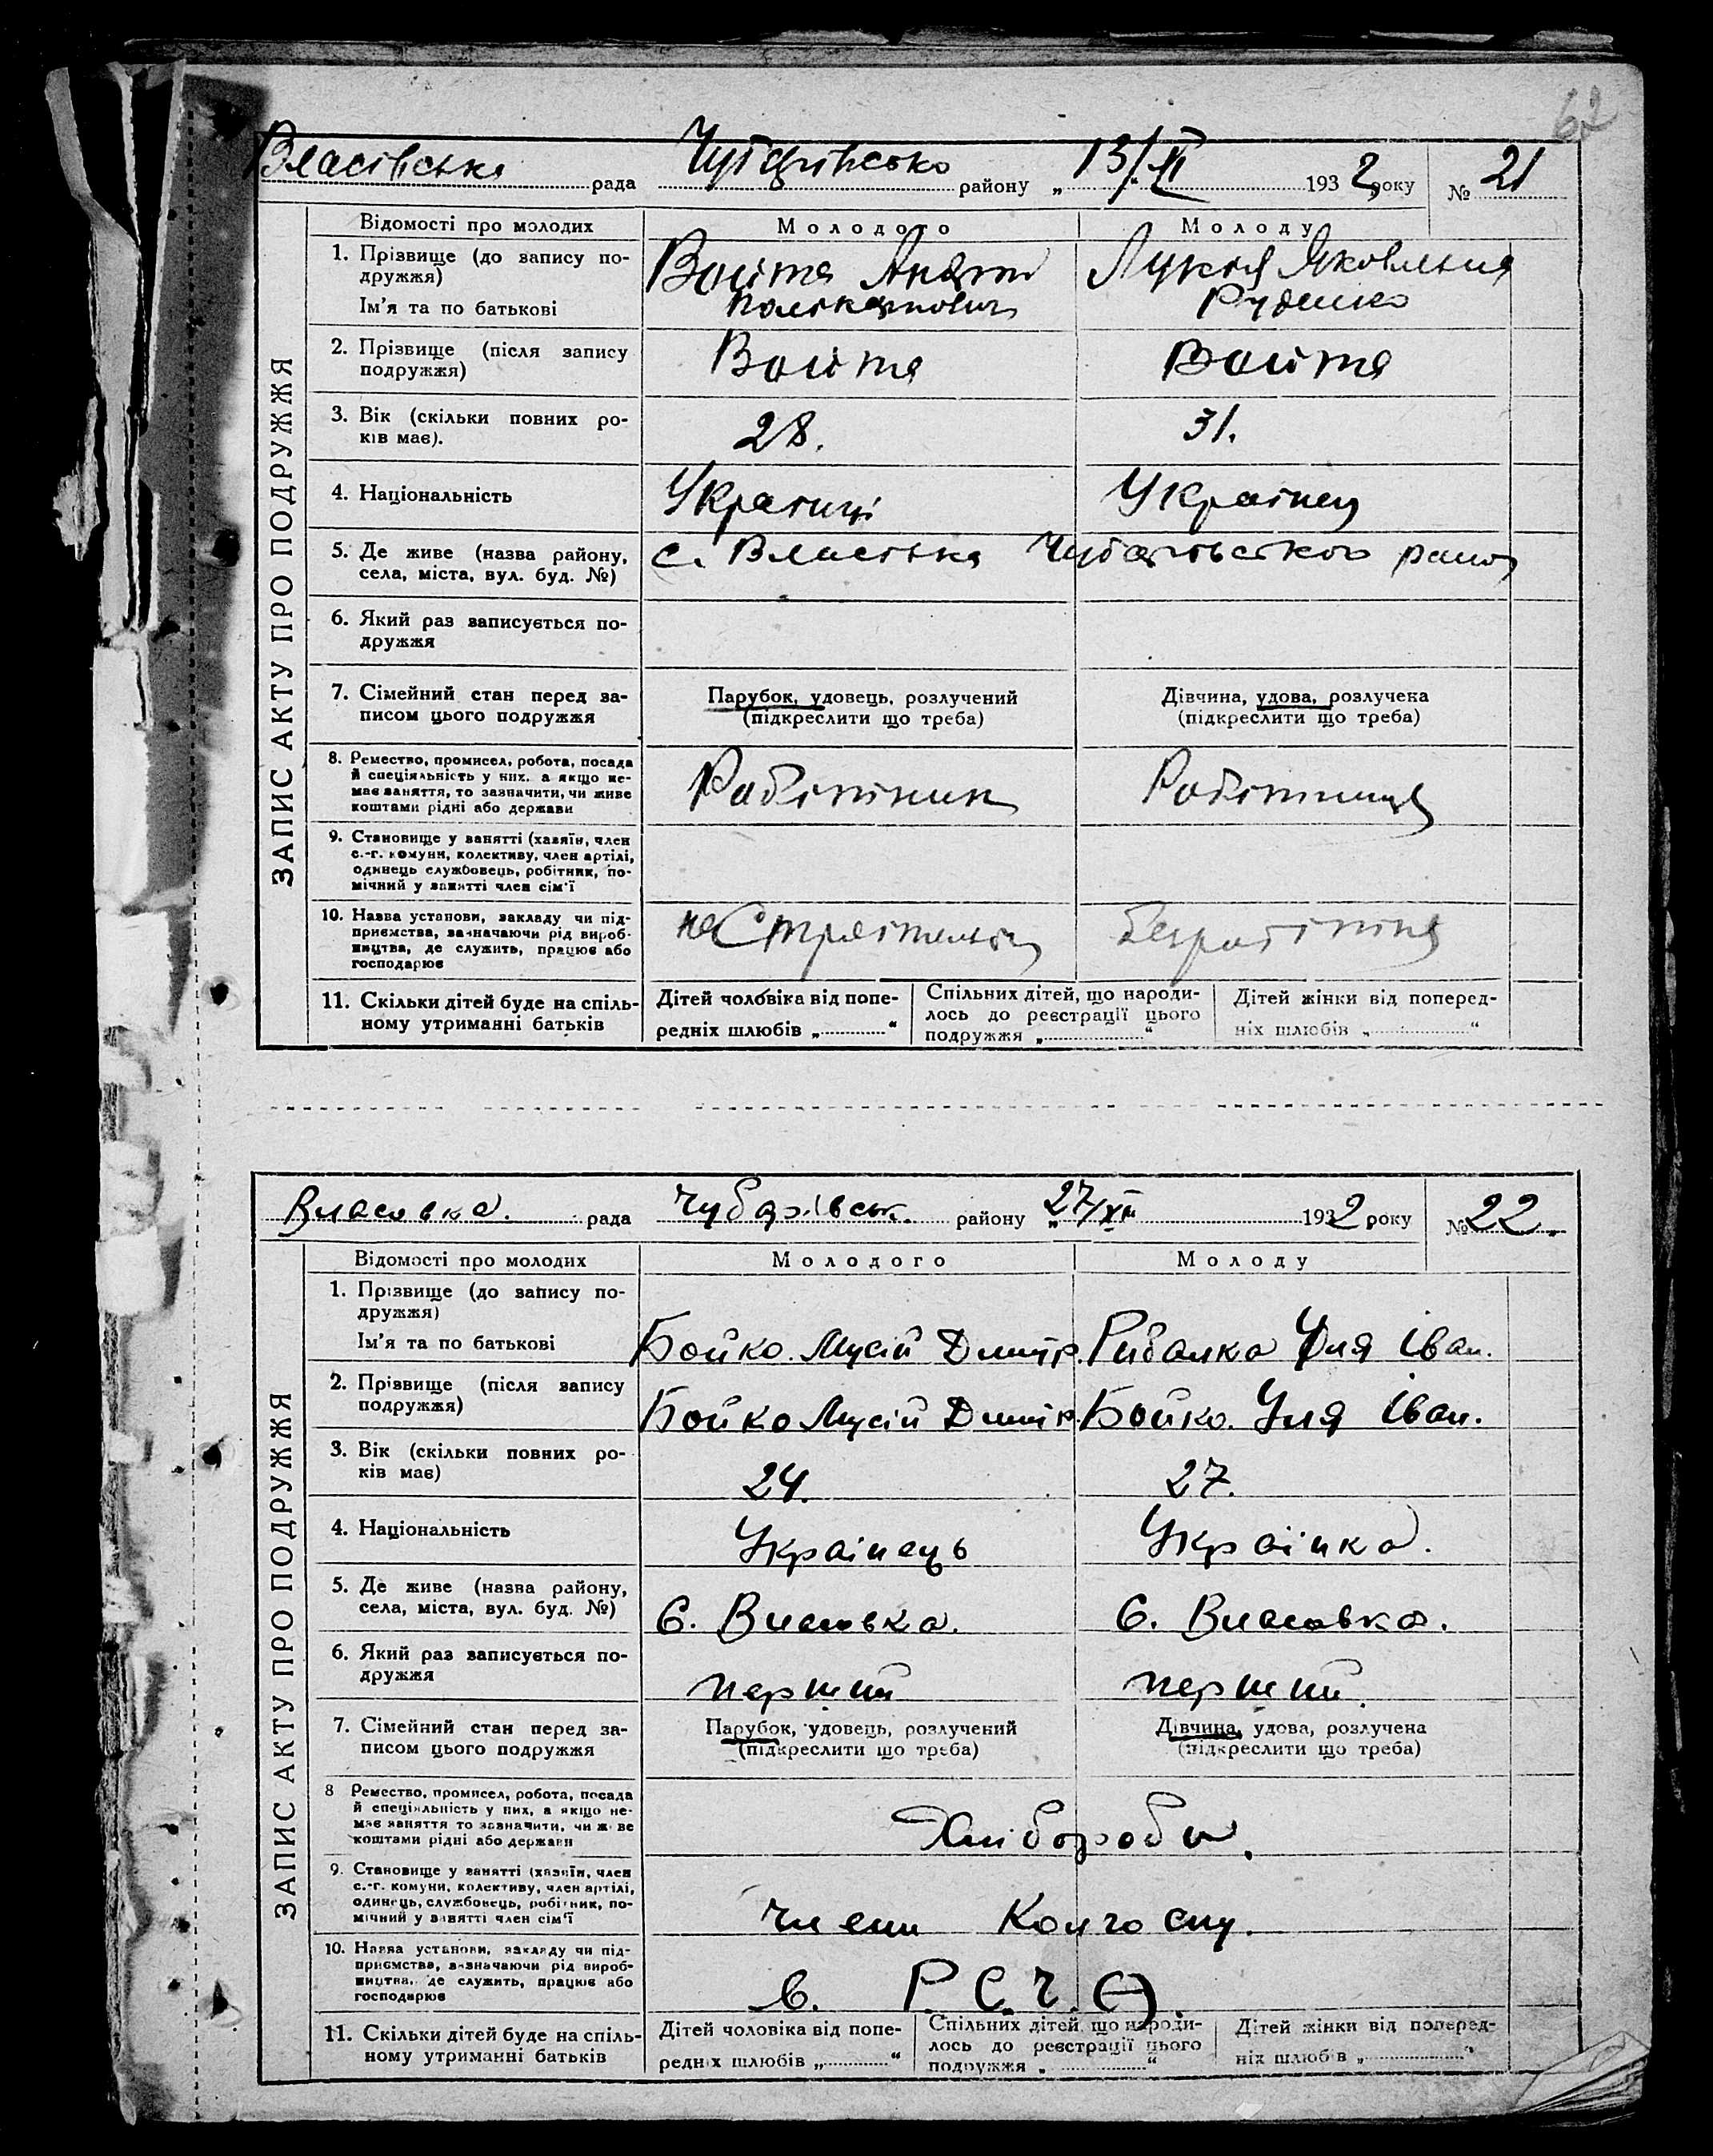 62
Власівська рада Чубарівсько району „13/XI 1932 року № 21
ЗАПИС АКТУ ПРО ПОДРУЖЖЯ
Відомості про молодих
Молодого
Молоду
1. Прізвище (до запису по-
дружжя)
Ім'я та по батькові
Войта
Полікарпович
Лукія Яковлевна
Руденко
2. Прізвище (після запису
подружжя)
Войта
Войта
3. Вік (скільки повних ро-
ків має).
28.
31.
4. Національність
5. Де живе (назва району,
села, міста, вул. буд. №)
с. Власівка Чубарівського
6. Який раз записується по-
дружжя
7. Сімейний стан перед за-
писом цього подружжя
Парубок, удовець, розлучений
(підкреслити що треба)
Дівчина, удова, розлучена
(підкреслити що треба)
8. Ремество, промисел, робота, посада
й спеціяльність у них, а якщо не-
має заняття, то зазначити, чи живе
коштами рідні або держави
Робітник
Робітниця
9. Становище у занятті (хазяїн, член
с.-г. комуни, колективу, член артілі,
одинець службовець, робітник, по-
мічний у занятті член сім'ї
10. Назва установи, закладу чи під-
приємства, зазначаючи рід вироб-
ництва, де служить, працює або
господарює
на
безробітня
11. Скільки дітей буде на спіль-
ному утриманні батьків
Дітей чоловіка від попе-
редніх шлюбів „ “
Спільних дітей, що народи-
лось до реєстрації цього
подружжя „ “
Дітей жінки від поперед-
ніх шлюбів „ “
Власовка. рада Чубарівськ. району „27/XII 1932 року № 22.
ЗАПИС АКТУ ПРО ПОДРУЖЖЯ
Відомості про молодих
Молодого
Молоду
1. Прізвище (до запису по-
дружжя)
Ім'я та по батькові
Бойко. Мусій Дмитр.
Рибалка Уля Іван.
2. Прізвище (після запису
подружжя)
Бойко Мусій Дмитр.
Бойко. Уля Іван.
3. Вік (скільки повних ро-
ків має)
24.
27.
4. Національність
Українець
Українка.
5. Де живе (назва району,
села, міста, вул. буд. №)
С. Власовка.
С. Власовка.
6. Який раз записується по-
дружжя
перший
перший.
7. Сімейний стан перед за-
писом цього подружжя
Парубок, удовець, розлучений
(підкреслити що треба)
Дівчина, удова, розлучена
(підкреслити що треба)
8 Ремество, промисел, робота, посада
й спеціяльність у них, а якщо не-
має заняття то зазначити, чи живе
коштами рідні або держави
Хлібороби.
9. Становище у занятті (хазяїн, член
с.-г. комуни, колективу, член артілі,
одинець, службовець, робітник, по-
мічний у занятті член сім'ї
Члени Колгоспу.
10. Назва установи, закладу чи під-
приємства, зазначаючи рід вироб-
ництва, де служить, працює або
господарює
в. Р. С. Ч. А.
11. Скільки дітей буде на спіль-
ному утриманні батьків
Дітей чоловіка від попе-
редніх шлюбів „ “
Спільних дітей, що народи-
лось до реєстрації цього
подружжя „ “
Дітей жінки від поперед-
ніх шлюбів „ “